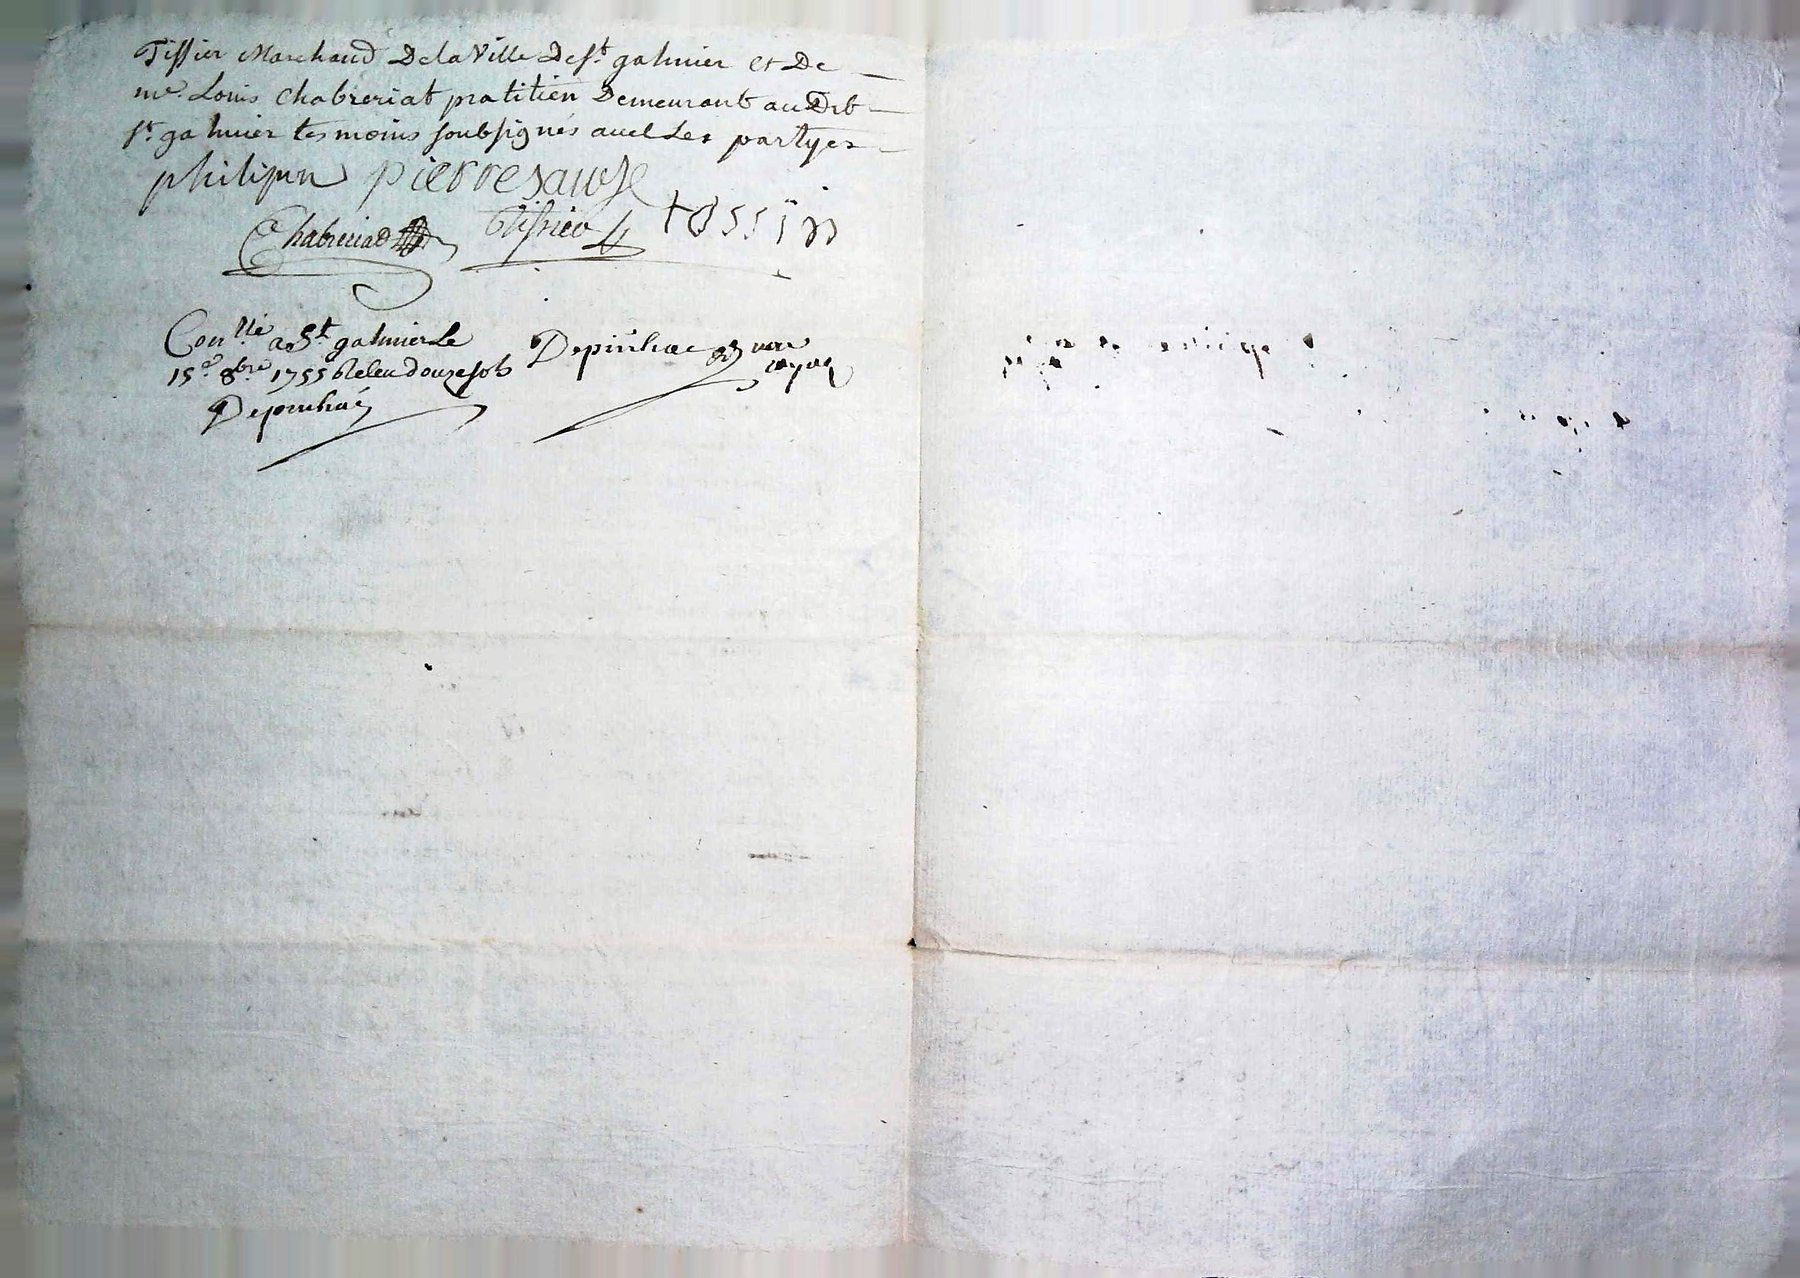 Tissier Marchand De la Ville De st. galmier et De
me. Louis Chabreriat pratitien Demeurant au Dit
st. galmier tesmoins soubsignés avec Les partyes
philipon pierre sauze
Chabreriad Tissier tossin
Conllé a St galmier Le
15e 8bre 1755 Releu douze sols
Depinhac
Depinhac no.re royal